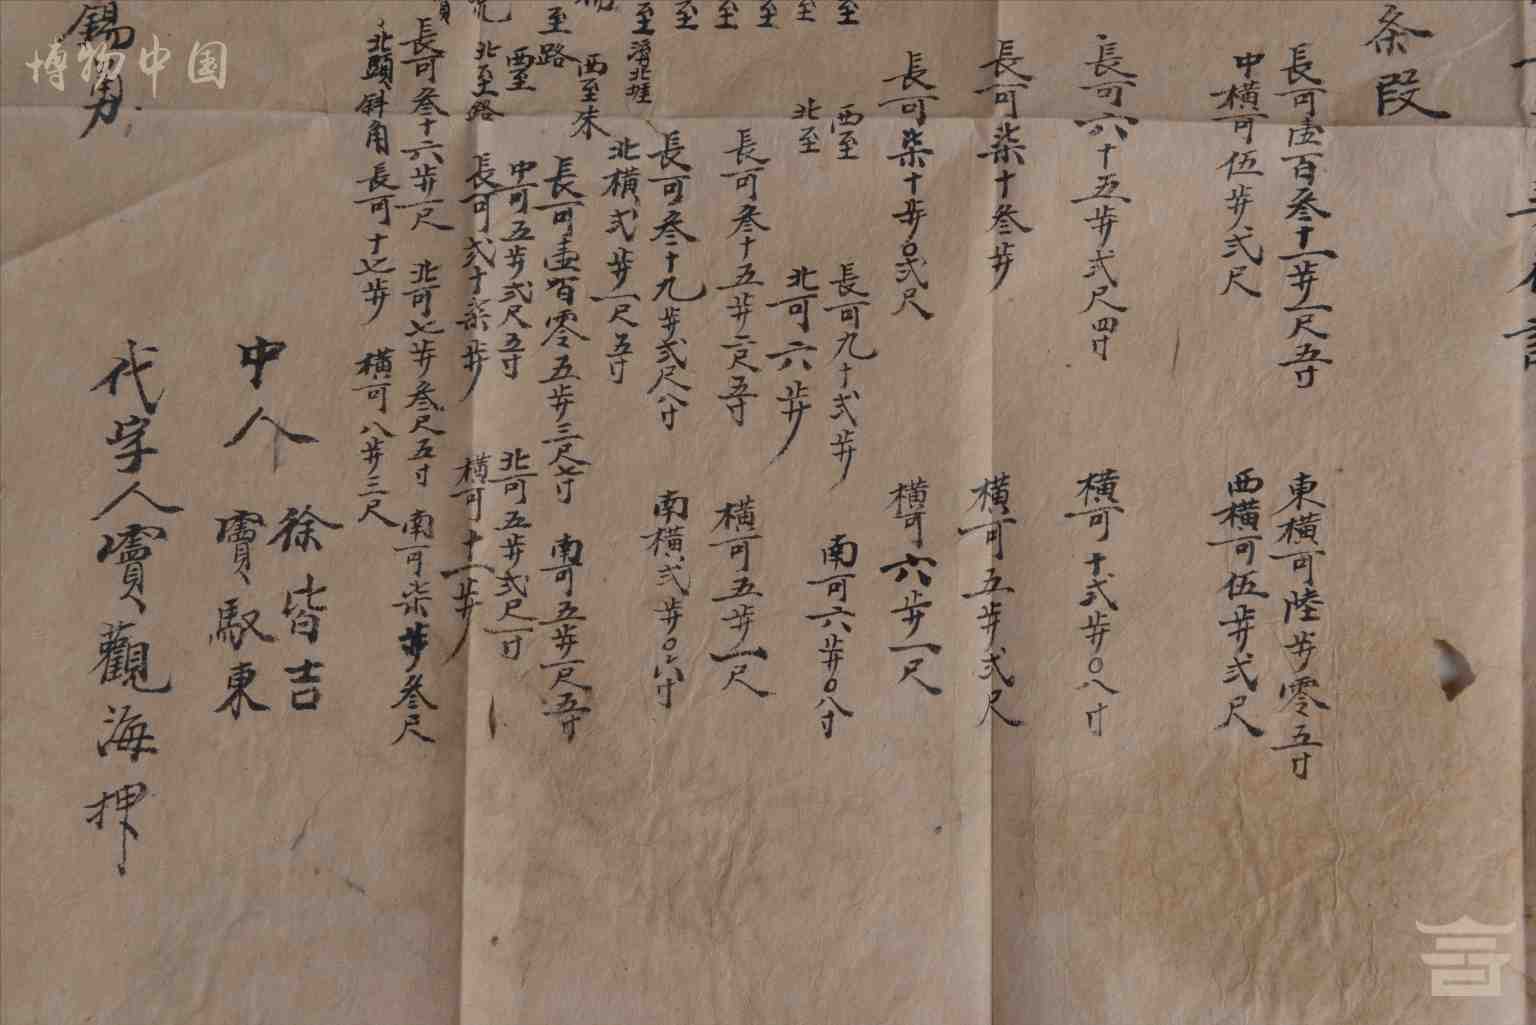 条段
長可壹百叁十一步一尺五寸
東橫可陸步零五寸
中橫可伍步弍尺
西橫可伍步弍尺
長可六十五步弍尺四寸
橫可十弍步0八寸
長可柒十叁步
橫可五步弍尺
長可柒十步0弍尺
橫可六步一尺
至
西至
長可九十弍步
南可六步0八寸
至
北至
北可六步
至
長可叁十五步二尺五寸
橫可五步一尺
至
至
長可叁十九步弍尺八寸
南橫弍步0六寸
至溝北埂
北橫弍步一尺五寸
西至朱
至路
長可壹百零五步三尺七寸
南可五步一尺五寸
西至
中可五步弍尺五寸
北可五步弍尺一寸
北至路
長可弍十柒步
橫可十一步
長可叁十六步一尺
北可七步叁尺五寸
南可柒步叁尺
北頭斜角長可十七步
橫可八步三尺
中人
徐皆吉
竇馭東
錫勇
代字人竇觀海押
博物中国